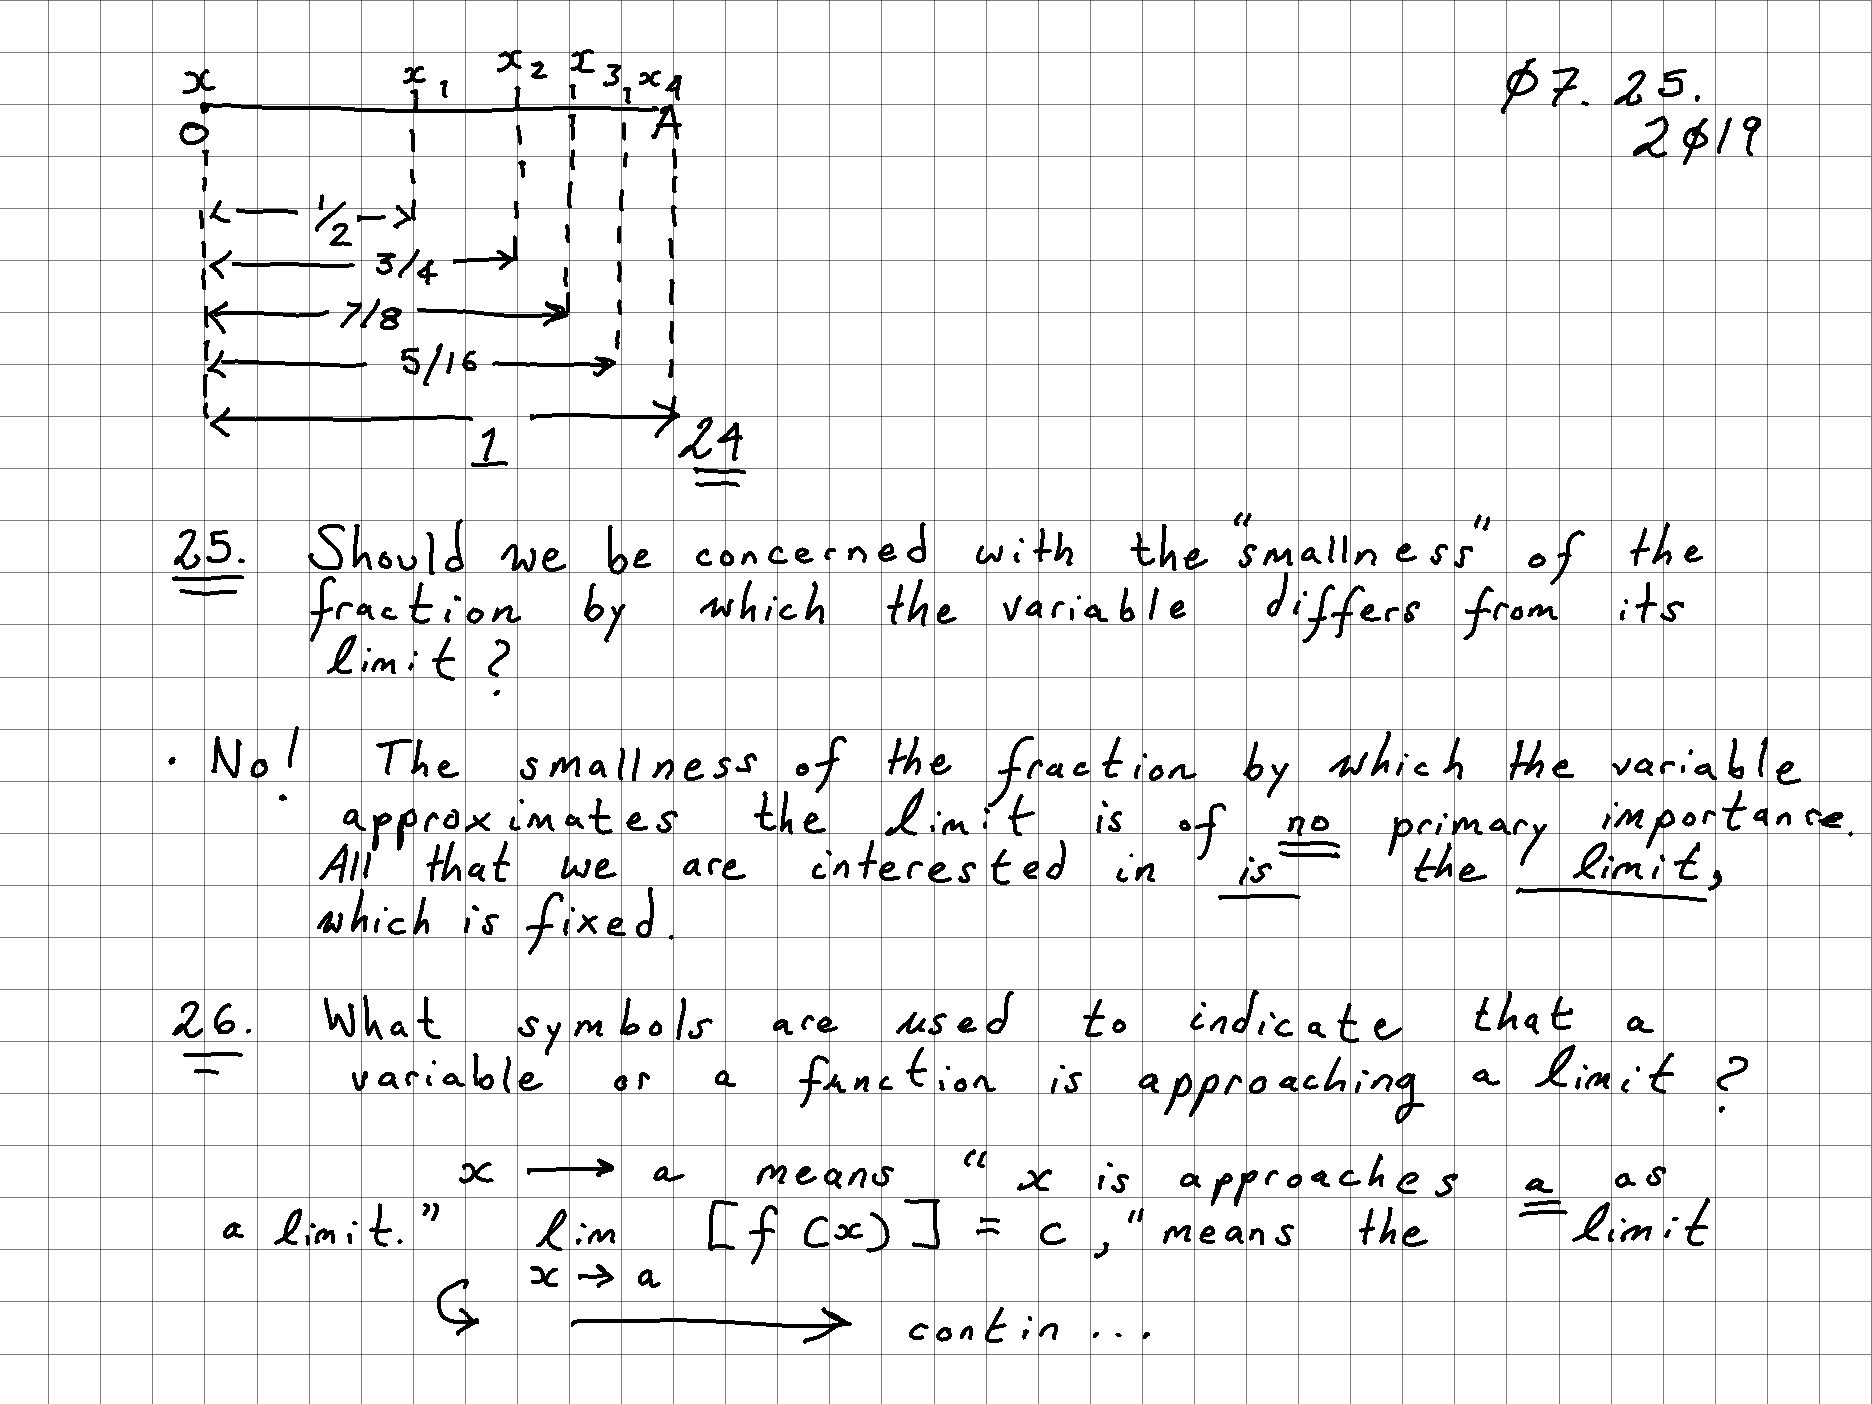 x x1 x2 x3 x4
O A
ø7. 25.
2ø19
1/2
3/4
7/8
5/16
1
24
25. Should we be concerned with the "smallness" of the
fraction by which the variable differs from its
limit?
. No! The smallness of the fraction by which the variable
approximates the limit is of no primary importance.
All that we are interested in is the limit,
which is fixed.
26. What symbols are used to indicate that a
variable or a function is approaching a limit?
x → a means "x is approaches a as
a limit." lim [f(x)] = c, "means the limit
x → a
contin...